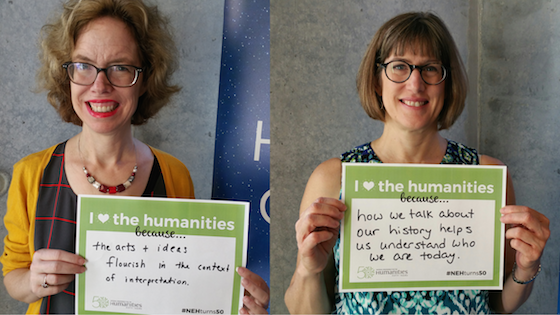 I ♥ the humanities
because...
the arts + ideas
flourish in the context
of interpretation.
Humanities
#NEHturns50
I ♥ the humanities
because...
how we talk about
our history helps
us understand who
we are today.
Humanities
#NEHturns50